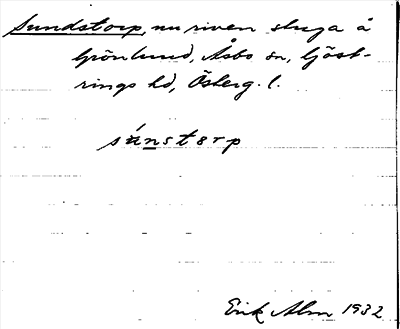 Sundstorp, nu riven stuga å
Grönlund, Åsbo sn, Göst-
rings hd, Österg. l.
súnstorp
Erik Alm 1932